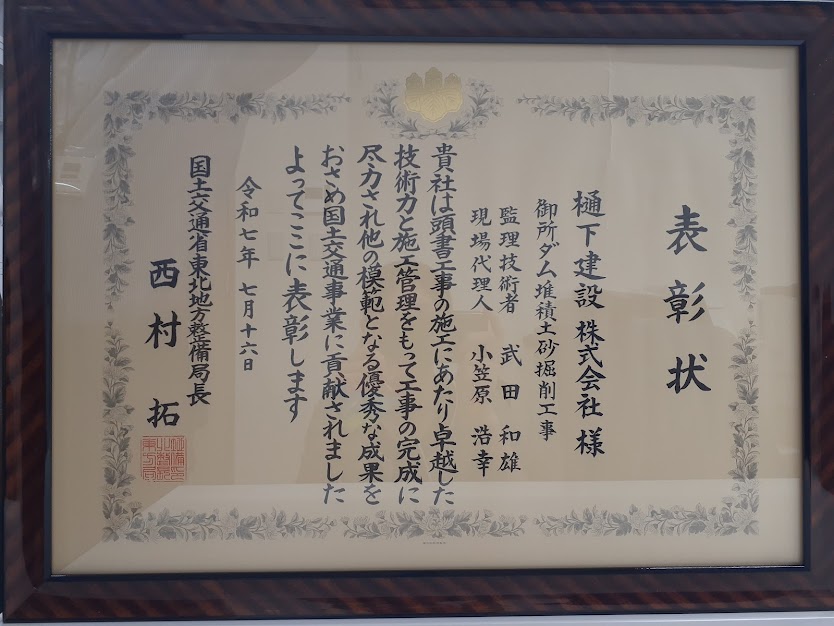 表彰状
樋下建設株式会社様
御所ダム堆積土砂掘削工事
監理技術者 武田和雄
現場代理人 小笠原浩幸
貴社は頭書工事の施工にあたり卓越した
技術力と施工管理をもって工事の完成に
尽力され他の模範となる優秀な成果を
おさめ国土交通事業に貢献されました
よってここに表彰します
令和七年七月十六日
国土交通省東北地方整備局長
西村拓